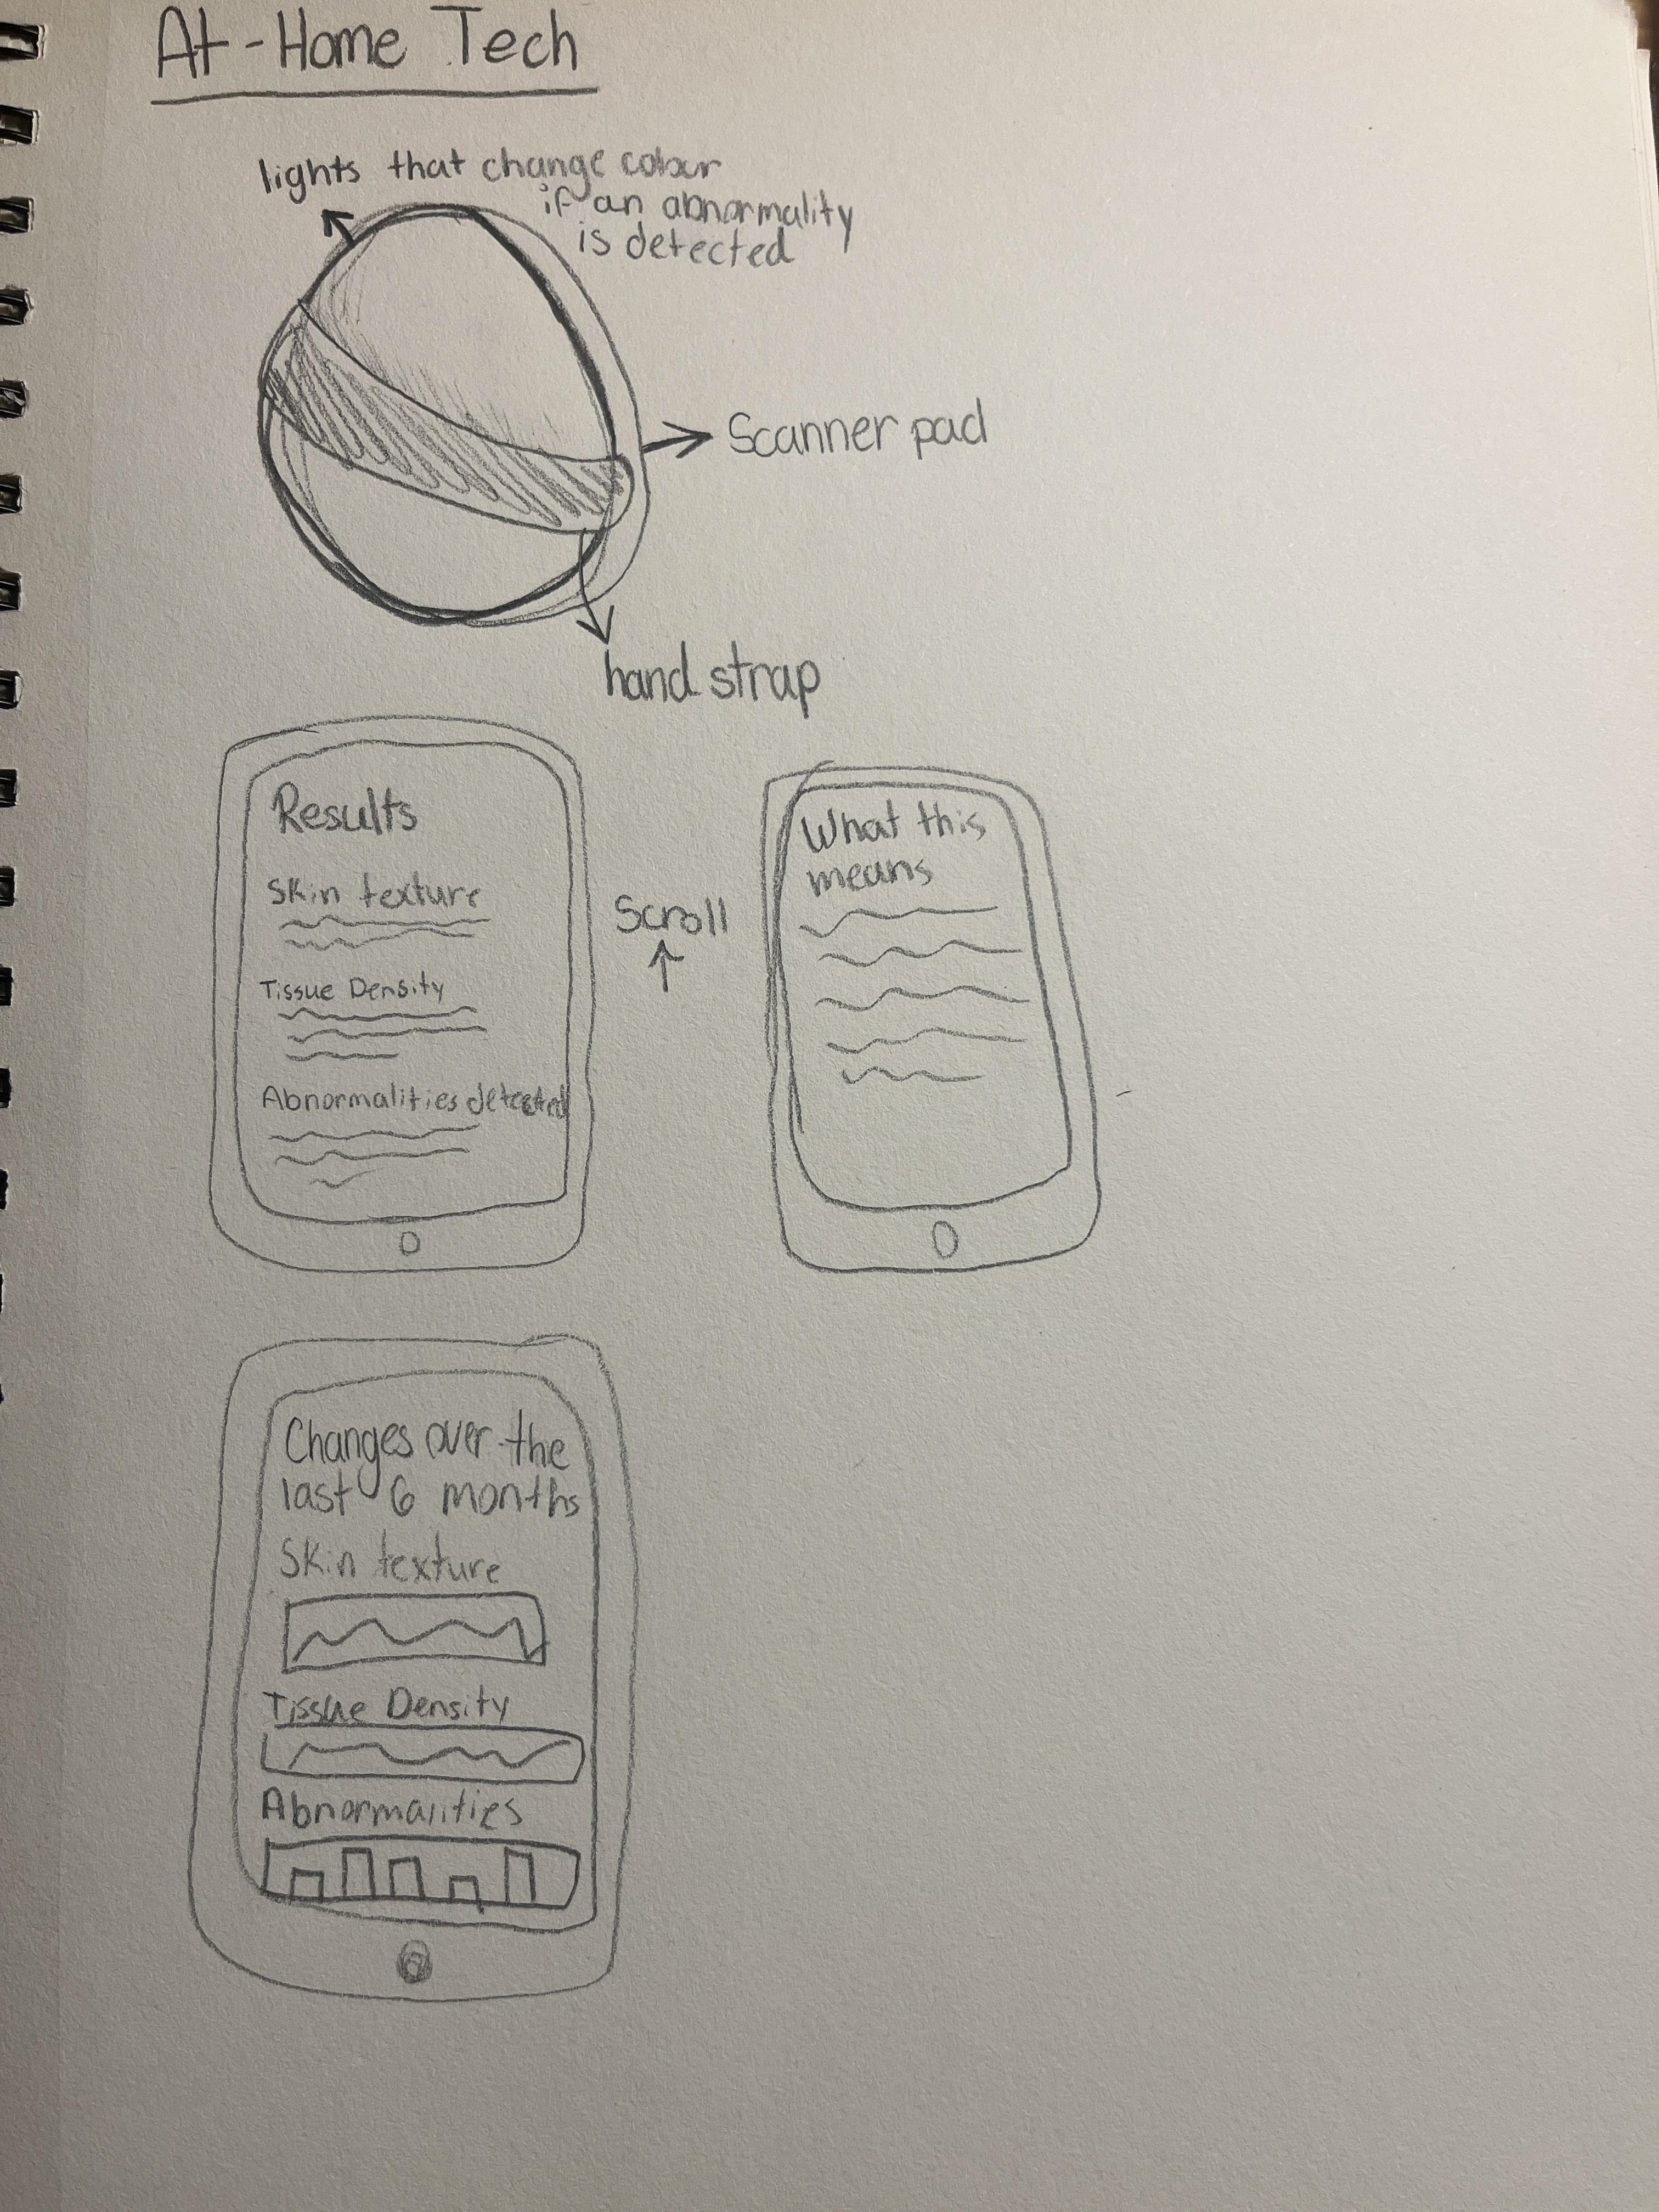 At-Home Tech
lights that change colour
if an abnormality
is detected
Scanner pad
hand strap
Results
Skin texture
Tissue Density
Abnormalities detected
Scroll
What this
means
Changes over the
last 6 months
Skin texture
Tissue Density
Abnormalities